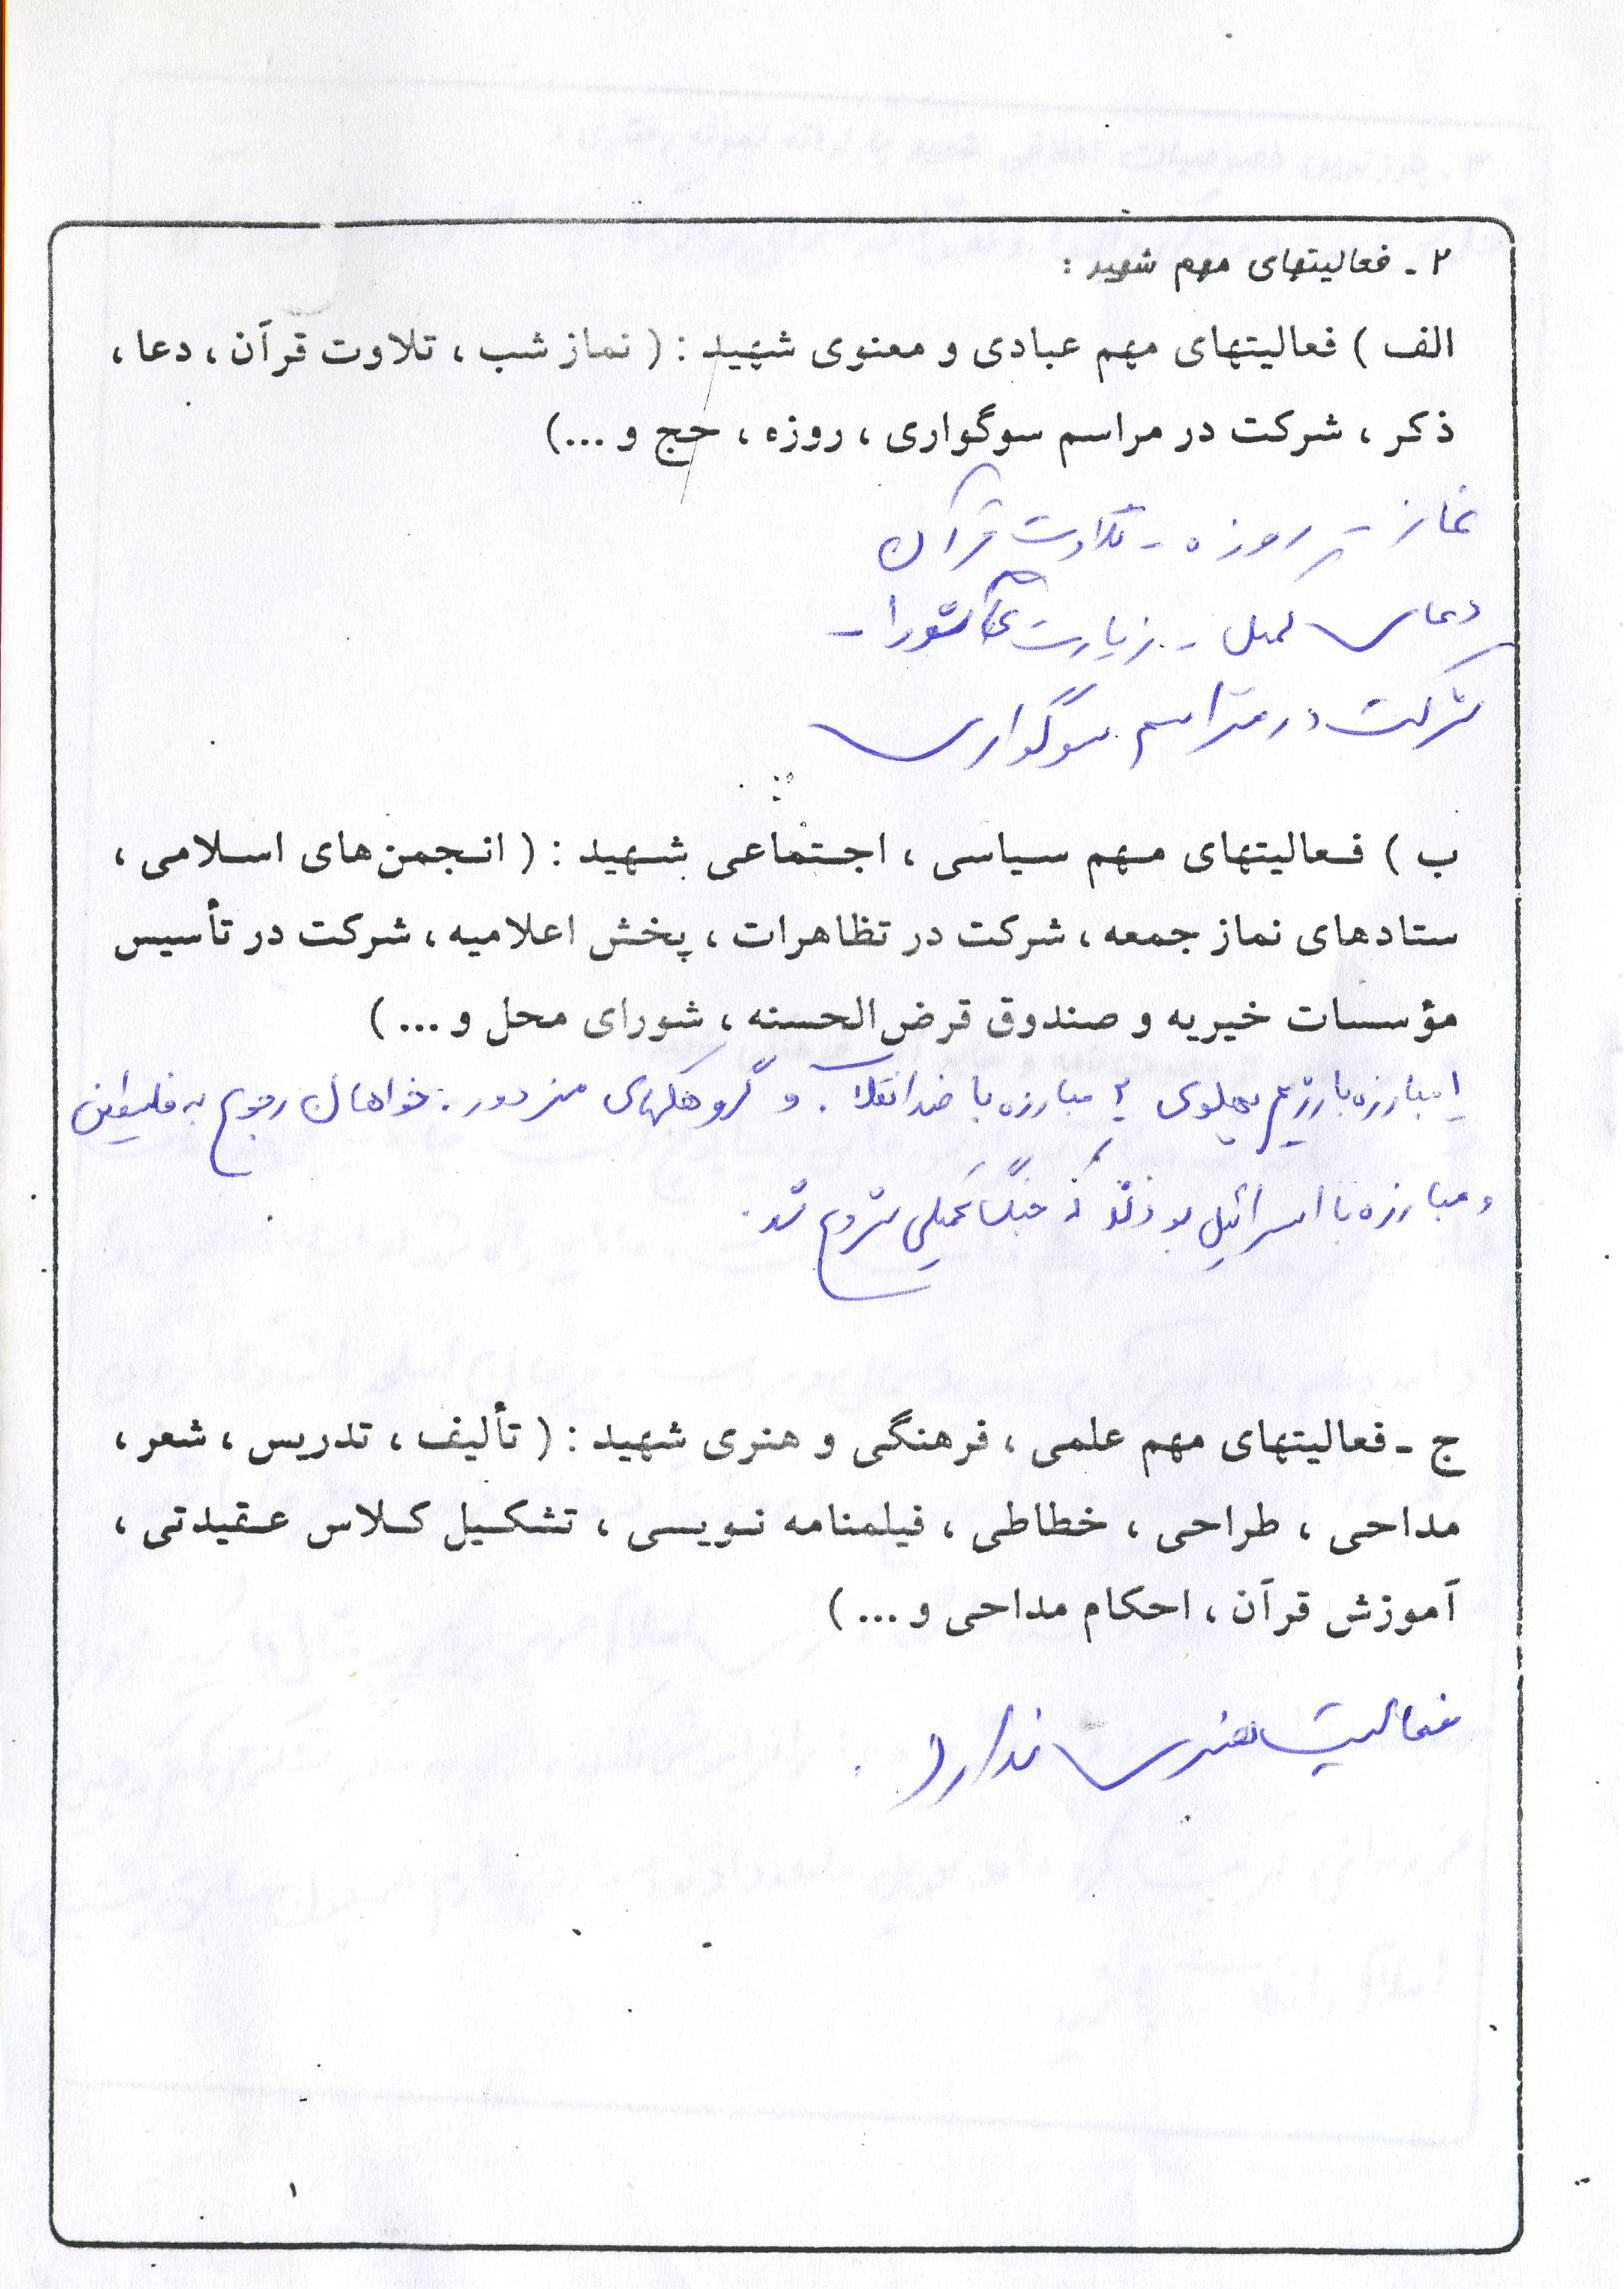 ۲ ـ فعالیتهای مهم شهید :
الف ) فعالیتهای مهم عبادی و معنوی شهید : ( نماز شب ، تلاوت قرآن ، دعا ،
ذکر ، شرکت در مراسم سوگواری ، روزه ، حج و ... )
نماز - روزه - تلاوت قرآن
دعای کمیل - زیارت عاشورا -
شرکت در مراسم سوگواری
ب ) فعالیتهای مهم سیاسی ، اجتماعی شهید : ( انجمن‌های اسلامی ،
ستادهای نماز جمعه ، شرکت در تظاهرات ، پخش اعلامیه ، شرکت در تأسیس
مؤسسات خیریه و صندوق قرض‌الحسنه ، شورای محل و ... )
۱ـ مبارزه با رژیم پهلوی ۲ـ مبارزه با ضد انقلاب و گروهکهای مزدور . خواهان رجوع به فلسطین
و مبارزه با اسرائیل بودند که جنگ تحمیلی شروع شد .
ج ـ فعالیتهای مهم علمی ، فرهنگی و هنری شهید : ( تألیف ، تدریس ، شعر ،
مداحی ، طراحی ، خطاطی ، فیلمنامه نویسی ، تشکیل کلاس عقیدتی ،
آموزش قرآن ، احکام مداحی و ... )
فعالیت هنری ندارد .